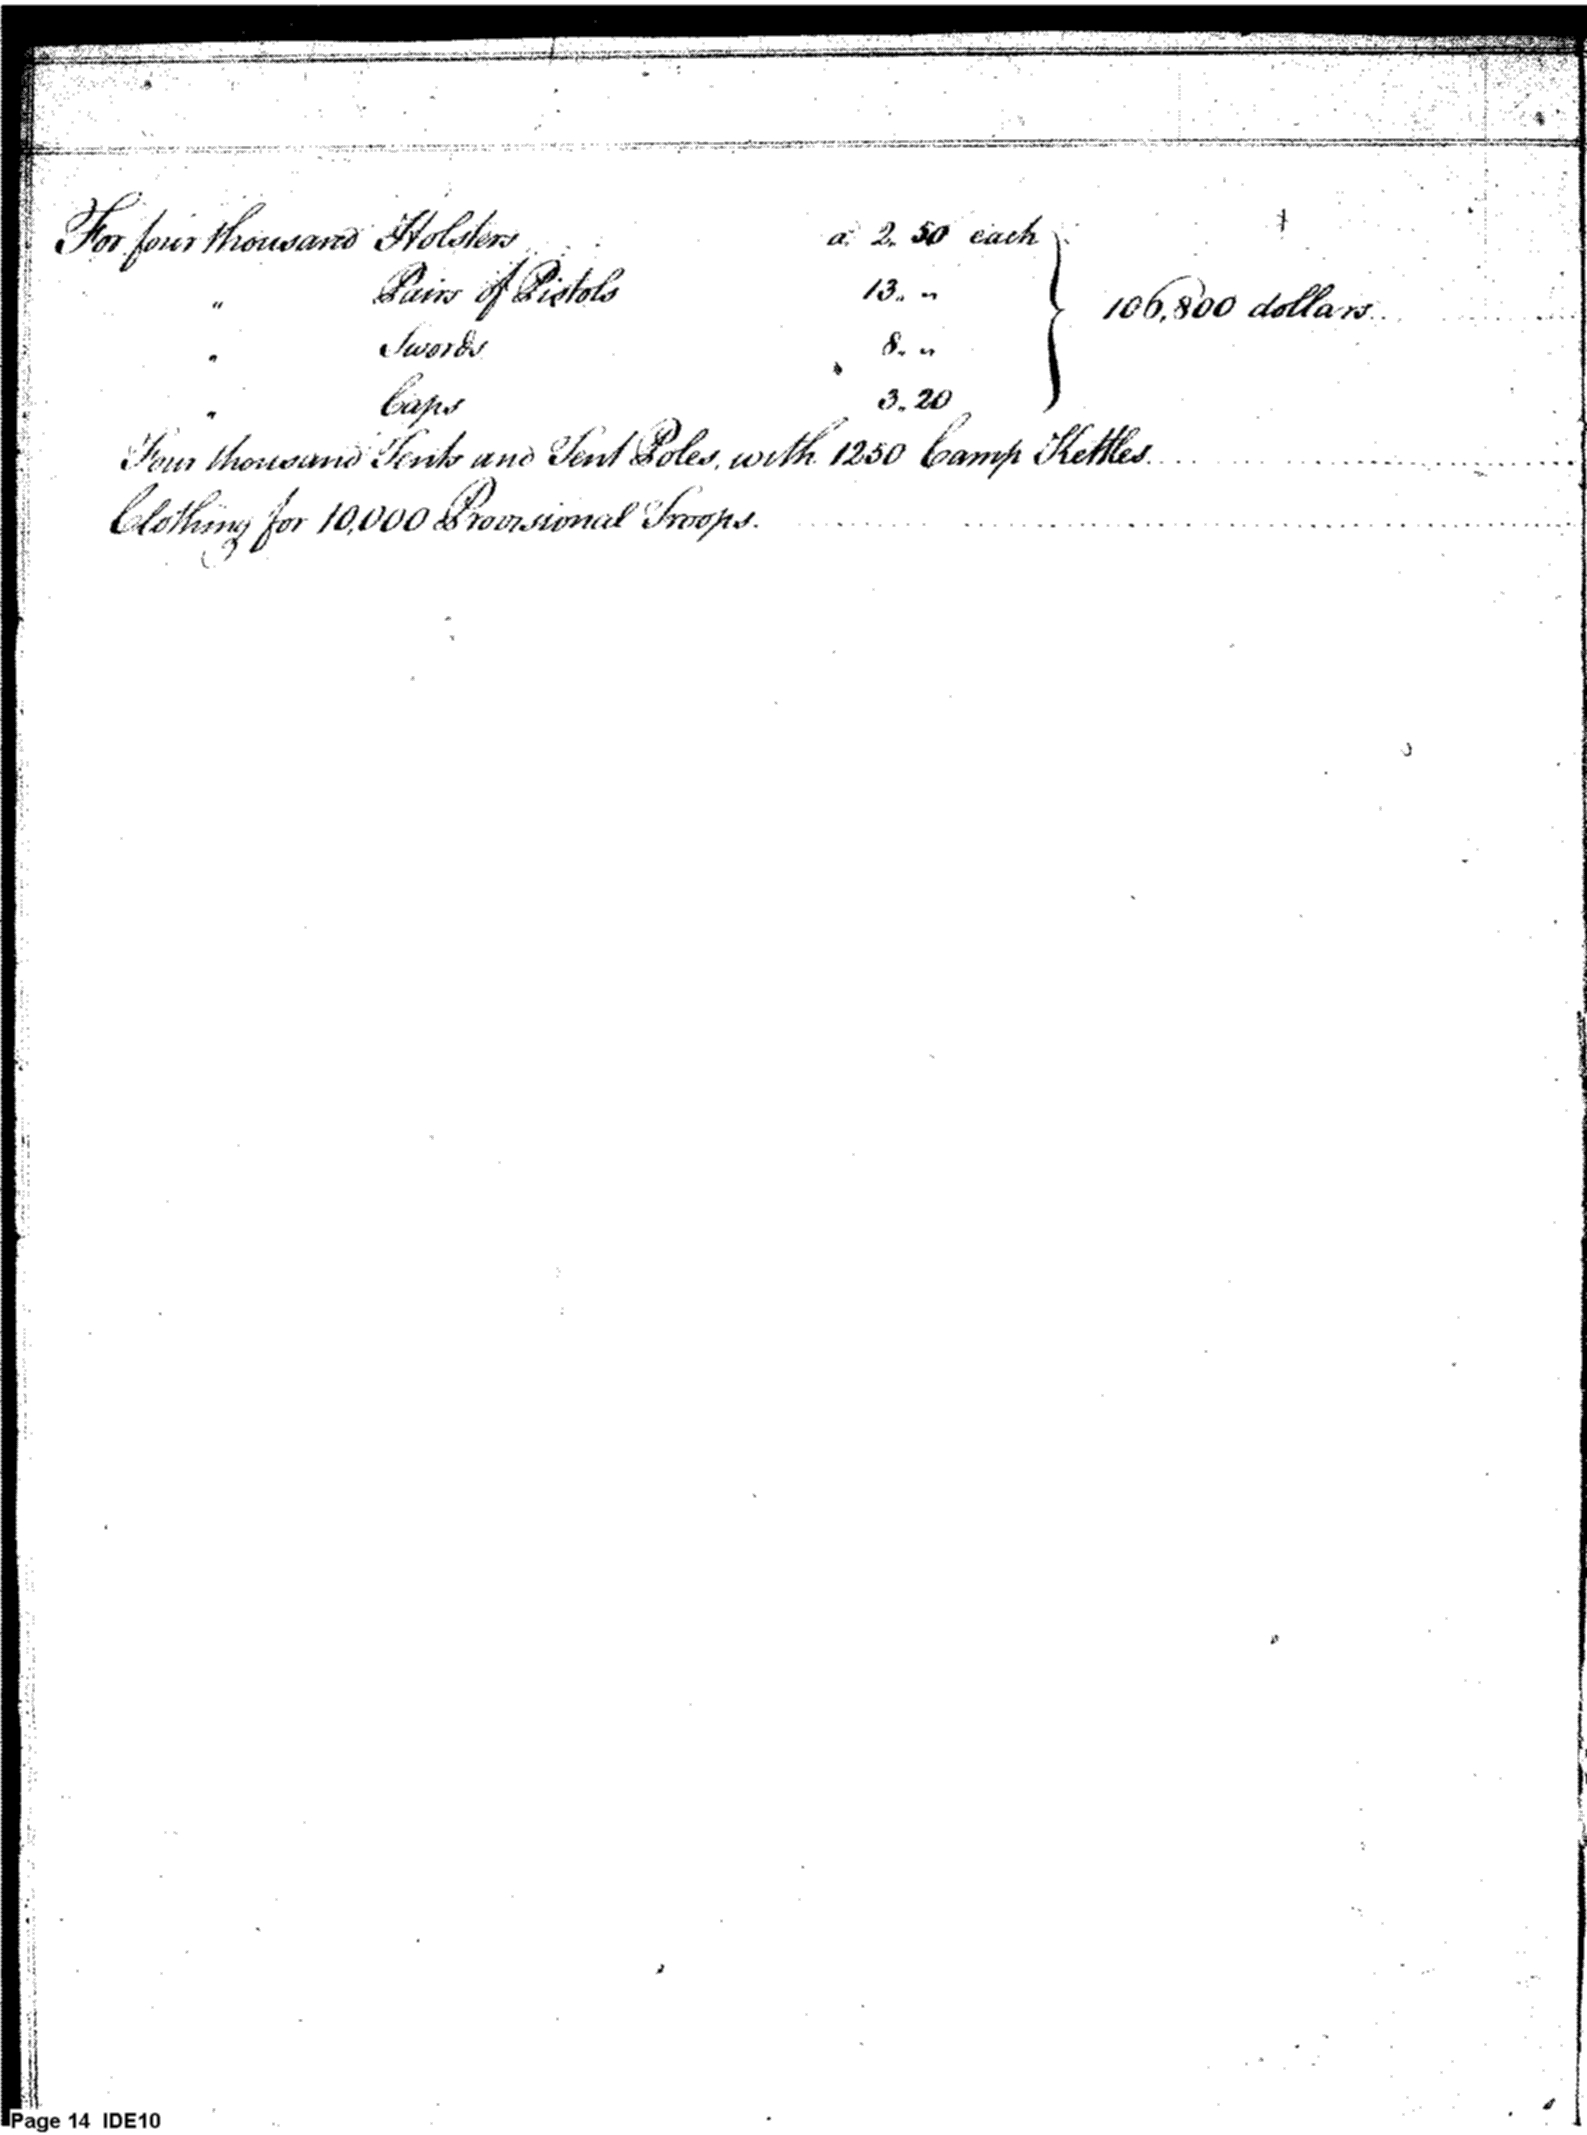 For four thousand Holsters a. 2. 50 each
" Pairs of Pistols 13. " 106,800 dollars
" Swords 8. "
" Caps 3. 20
Four thousand Tents and Tent Poles, with 1250 Camp Kettles
Clothing for 10,000 Provisional Troops.
Page 14 IDE10